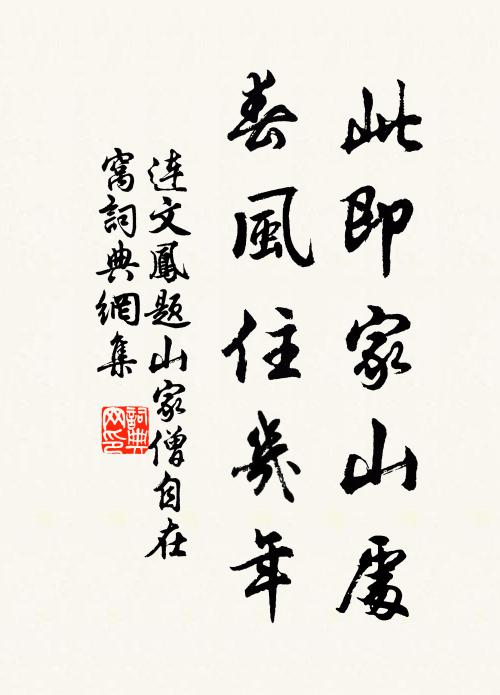 此即家山處
春風住幾年
連文鳳題山家僧自在
窩詞典網集
詞典网印